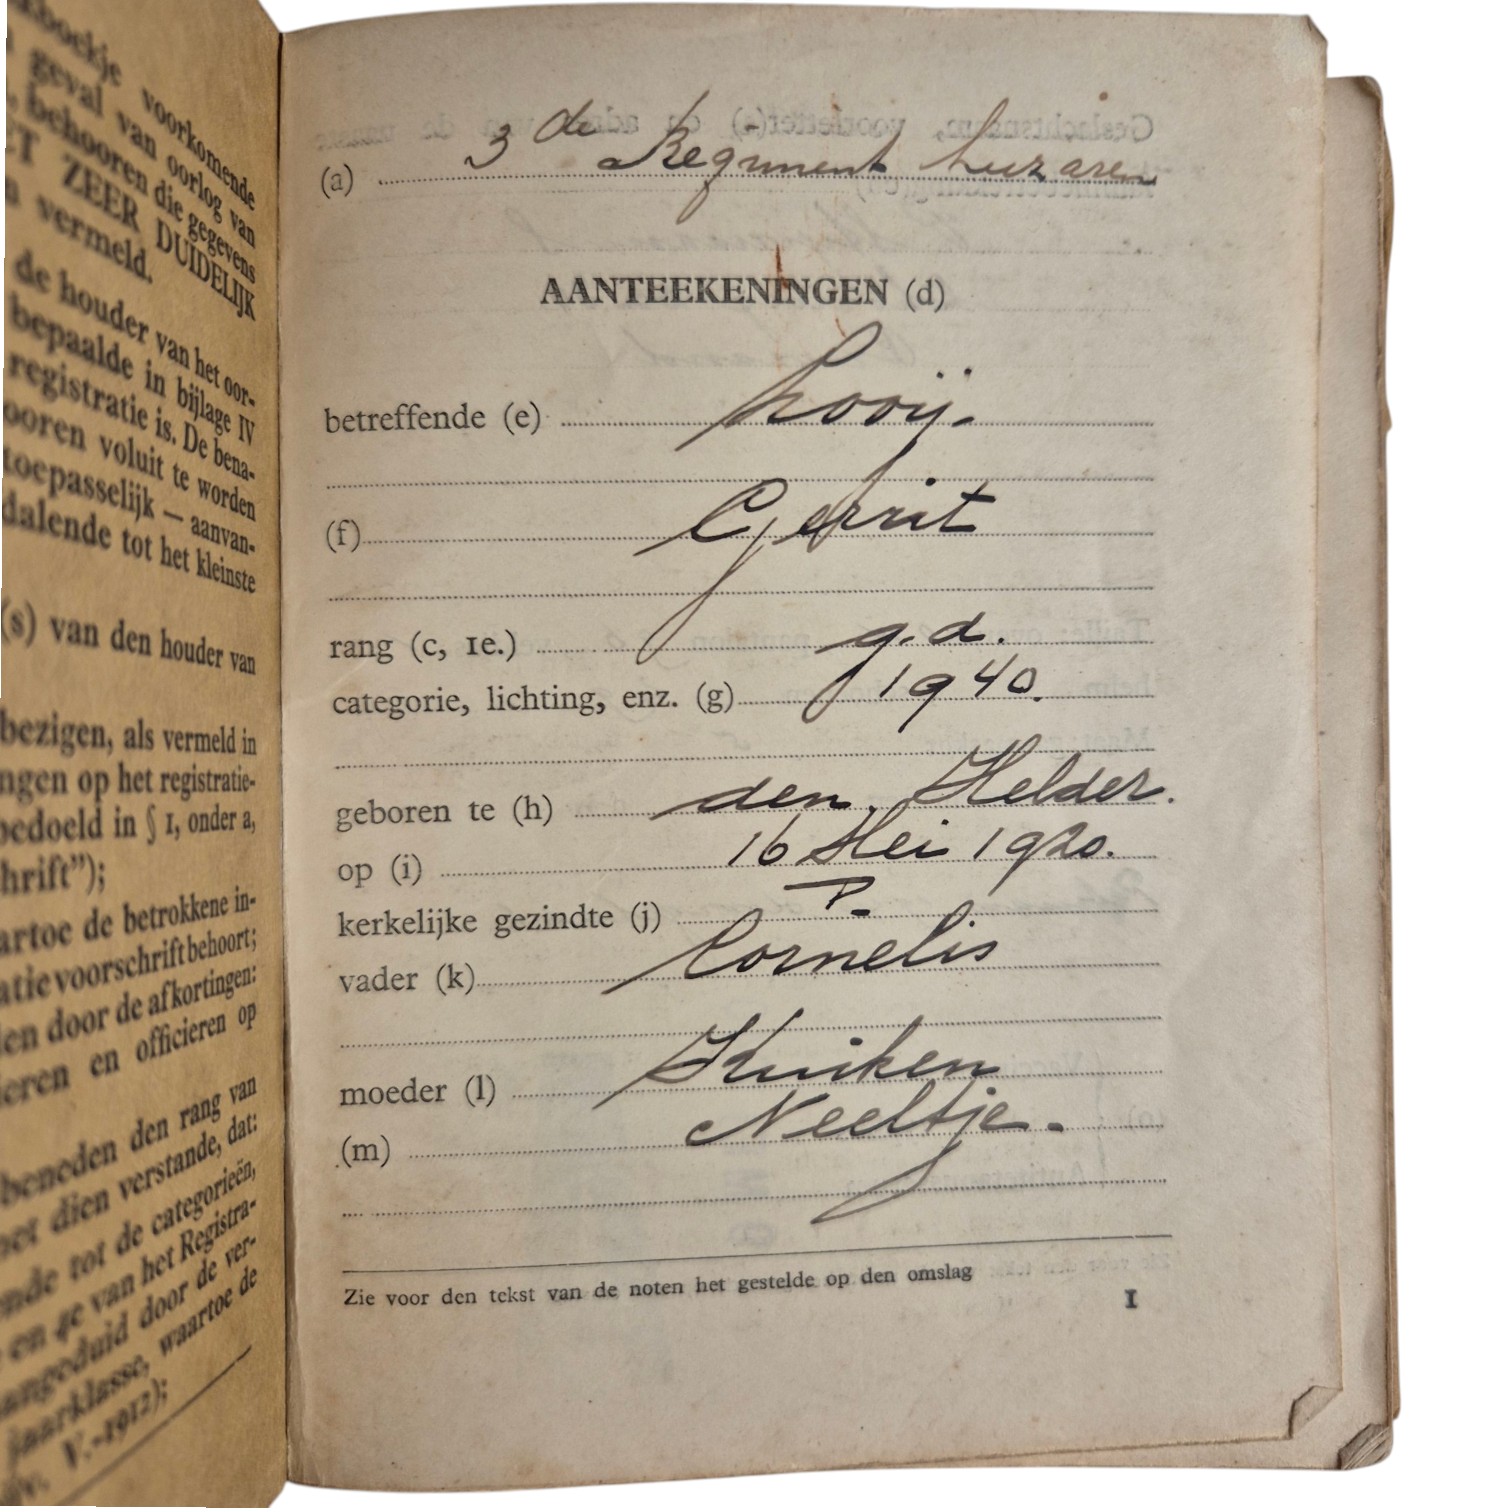 boekje voorkomende
geval van oorlog van
behooren die gegevens
ZEER DUIDELIJK
vermeld.
de houder van het oor-
bepaalde in bijlage IV
registratie is. De bena-
ooren voluit te worden
toepasselijk — aanvan-
dalende tot het kleinste
(s) van den houder van
bezigen, als vermeld in
ngen op het registratie-
bedoeld in § 1, onder a,
hrift");
artoe de betrokkene in-
atievoorschrift behoort;
den door de afkortingen:
ieren en officieren op
beneden den rang van
met dien verstande, dat:
ende tot de categorieën,
en 4e van het Registra-
aangeduid door de ver-
jaarklasse, waartoe de
V.-1912);
(a) 3de Regiment huzaren
AANTEEKENINGEN (d)
betreffende (e) Looij.
(f) Gerrit
rang (c, 1e.) g.d.
categorie, lichting, enz. (g) 1940.
geboren te (h) den Helder.
op (i) 16 Mei 1920.
kerkelijke gezindte (j) P.
vader (k) Cornelis
moeder (l) Kuiken
(m) Neeltje.
Zie voor den tekst van de noten het gestelde op den omslag
1